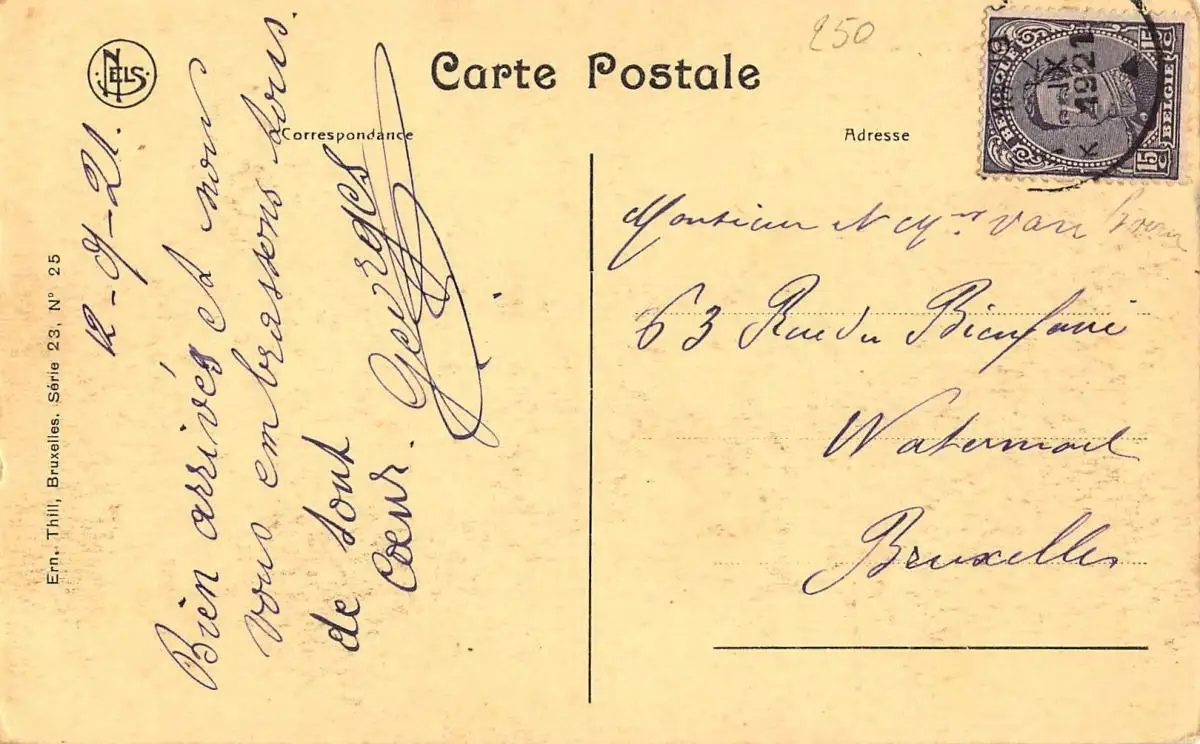 Carte Postale
250
NELS
Correspondance
Adresse
Ern. Thill, Bruxelles. Série 23, N° 25
12-9-21.
Bien arrivés et nous
vous embrassons tous
de tout
Cœur.
Georges
BELGIQUE
15
15
BELGIE
IX
1921
Monsieur et Mme van
63 Rue du Bienfaire
Watermael
Bruxelles